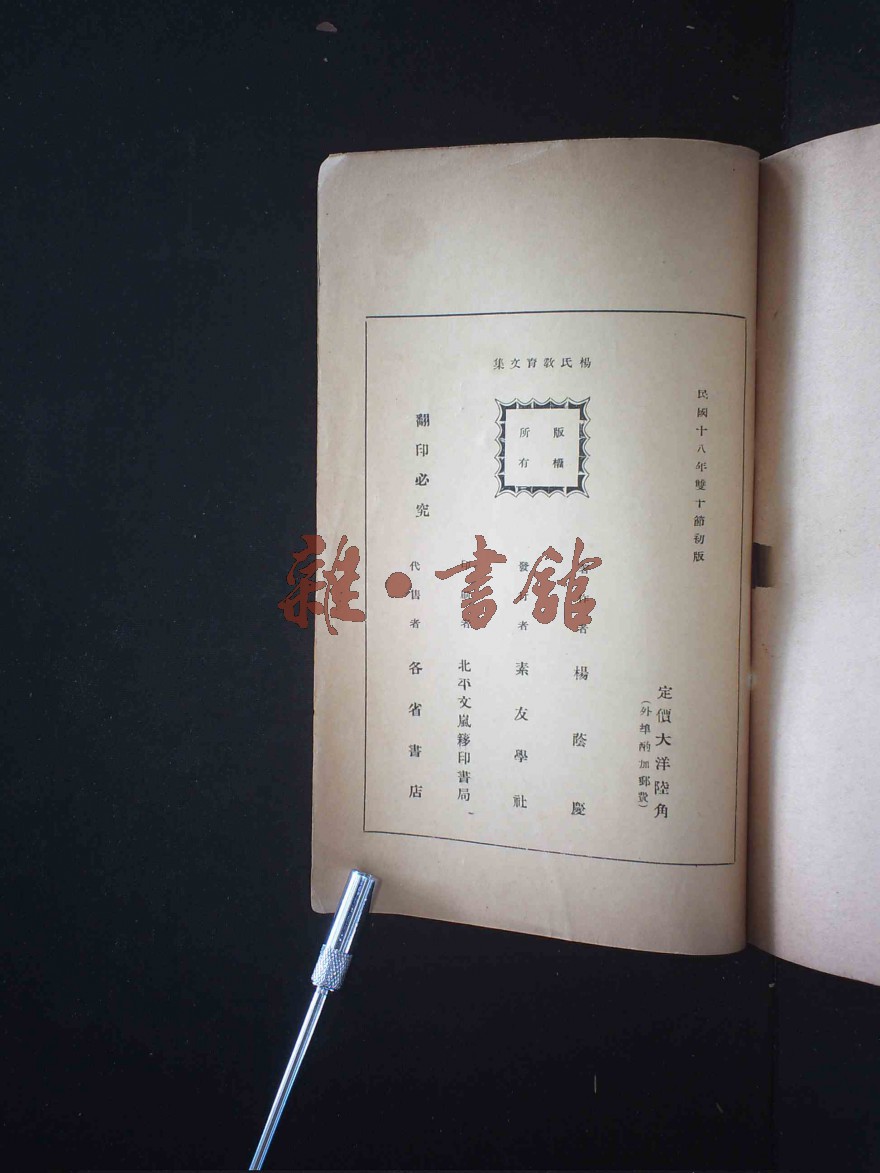 民國十八年雙十節初版
定價大洋陸角
（外埠酌加郵費）
楊氏敎育文集
版權
所有
翻印必究
著作者 楊蔭慶
發行者 素友學社
印刷者 北平文嵐簃印書局
代售者 各省書店
雜·書館